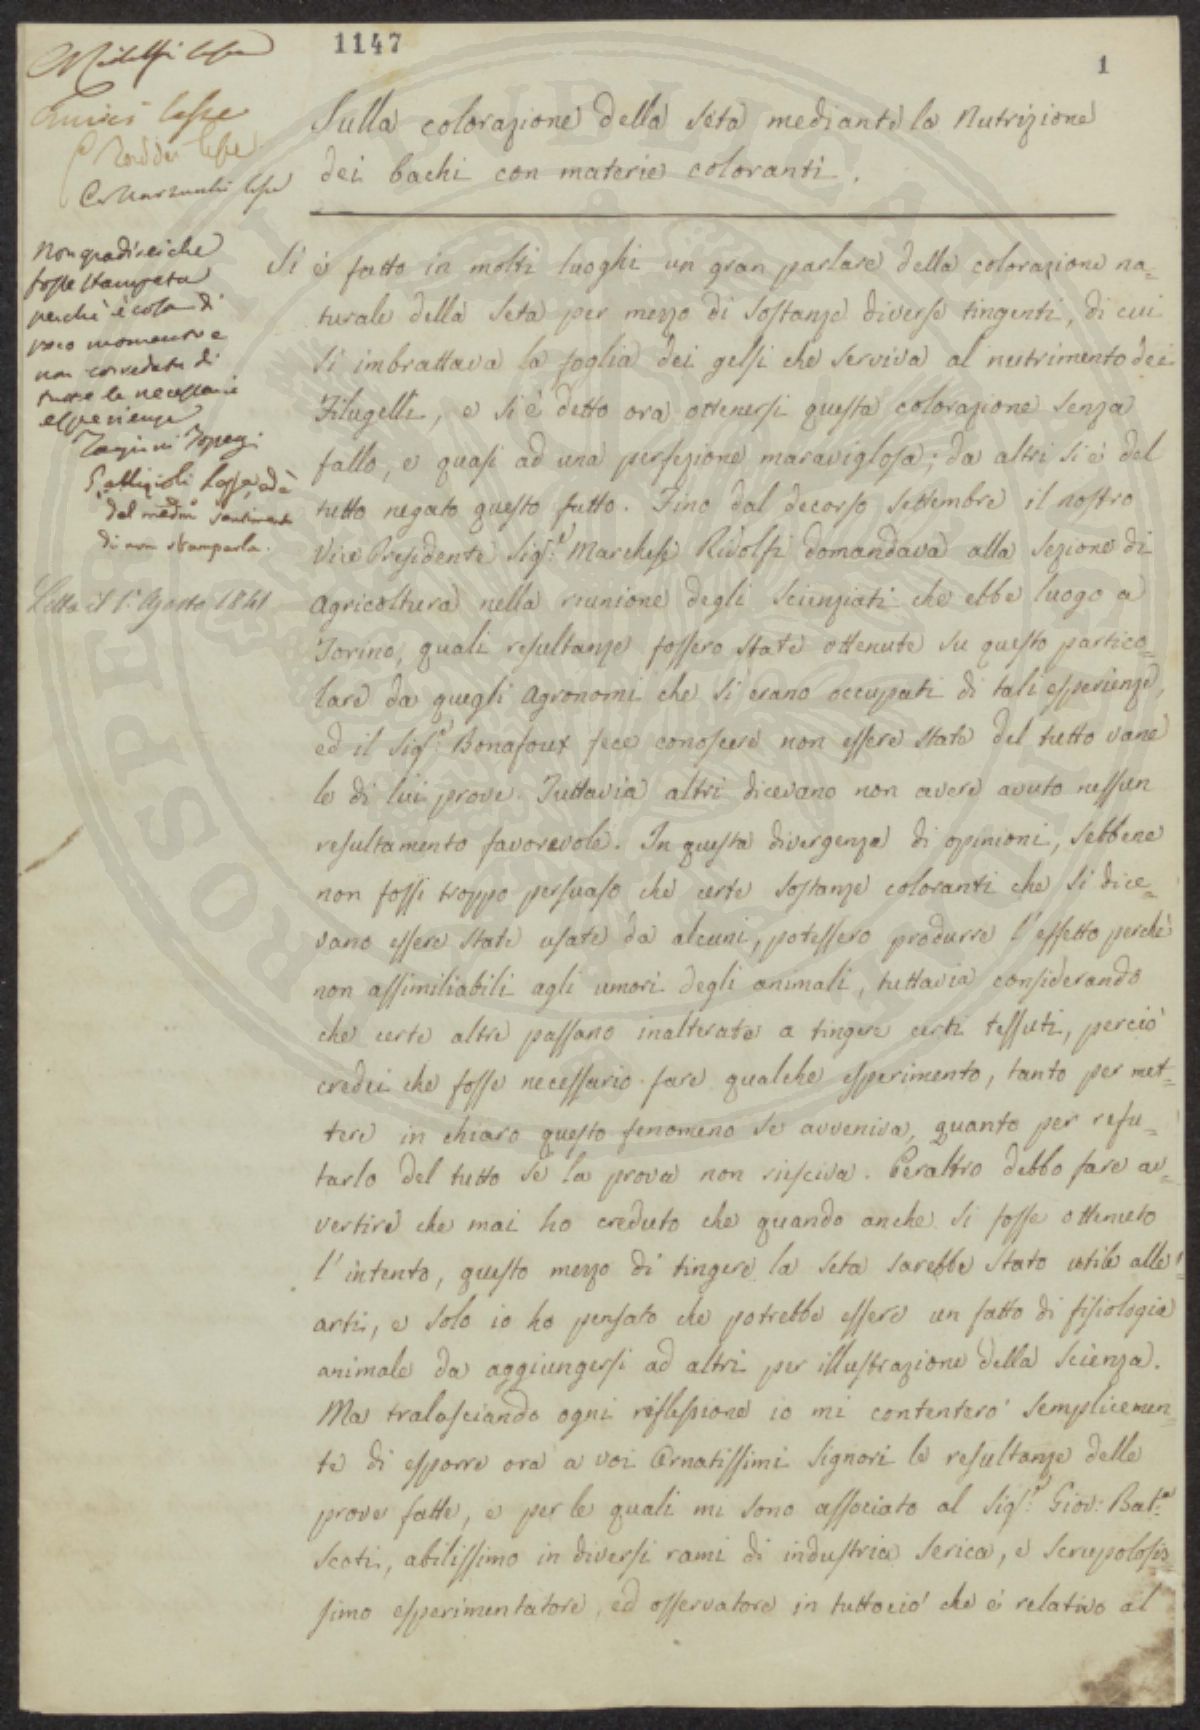 1147
1
Ridolfi lesse
lesse
lesse
lesse
Sulla colorazione della seta mediante la Nutrizione
dei bachi con materie coloranti.
Non gradirei che
fosse stampata
perché è cosa di
poco momento e
non corredata di
tutte le necessarie
esperienze
Targioni Tozzetti
lesse, ed è
del medmo sentimento
di non stamparla.
Letta il 1° Agosto 1841
Si è fatto in molti luoghi un gran parlare della colorazione na=
turale della seta per mezzo di sostanze diverse tingenti, di cui
si imbrattava la foglia dei gelsi che serviva al nutrimento dei
Filugelli, e si è detto ora ottenersi questa colorazione senza
fallo, e quasi ad una perfezione maravigliosa; da altri si è del
tutto negato questo fatto. Fino dal decorso Settembre il nostro
Vice Presidente Sig.r Marchese Ridolfi domandava alla Sezione di
Agricoltura nella riunione degli Scienziati che ebbe luogo a
Torino, quali resultanze fossero state ottenute su questo partico=
lare da quegli Agronomi che si erano occupati di tali esperienze,
ed il Sig.r Bonafoux fece conoscere non essere state del tutto vane
le di lui prove. Tuttavia altri dicevano non avere avuto nessun
resultamento favorevole. In questa divergenza di opinioni, sebbene
non fossi troppo persuaso che certe sostanze coloranti che si dice=
vano essere state usate da alcuni, potessero produrre l'effetto perchè
non assimiliabili agli umori degli animali, tuttavia considerando
che certe altre passano inalterate a tingere certi tessuti, perciò
credei che fosse necessario fare qualche esperimento, tanto per met=
tere in chiaro questo fenomeno se avveniva, quanto per refu=
tarlo del tutto se la prova non riesciva. Peraltro debbo fare av=
vertire che mai ho creduto che quando anche si fosse ottenuto
l'intento, questo mezzo di tingere la seta sarebbe stato utile alle
arti, e solo io ho pensato che potrebbe essere un fatto di fisiologia
animale da aggiungersi ad altri per illustrazione della scienza.
Ma tralasciando ogni riflessione io mi contenterò semplicemen=
te di esporre ora a voi Ornatissimi Signori le resultanze delle
prove fatte, e per le quali mi sono associato al Sig.r Giov: Bat.a
Scoti, abilissimo in diversi rami di industria serica, e scrupolosis=
simo esperimentatore, ed osservatore in tuttociò che è relativo al